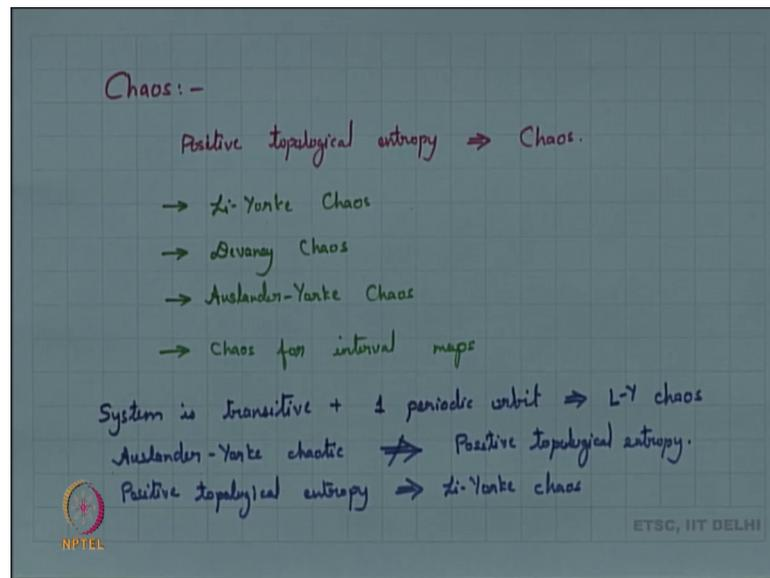 Chaos:-
Positive topological entropy ⇒ Chaos.
→ Li-Yorke Chaos
→ Devaney Chaos
→ Auslander-Yorke Chaos
→ Chaos for interval maps
System is transitive + 1 periodic orbit ⇒ L-Y chaos
Auslander-Yorke chaotic ⇏ Positive topological entropy.
Positive topological entropy ⇒ Li-Yorke chaos
NPTEL
ETSC, IIT DELHI